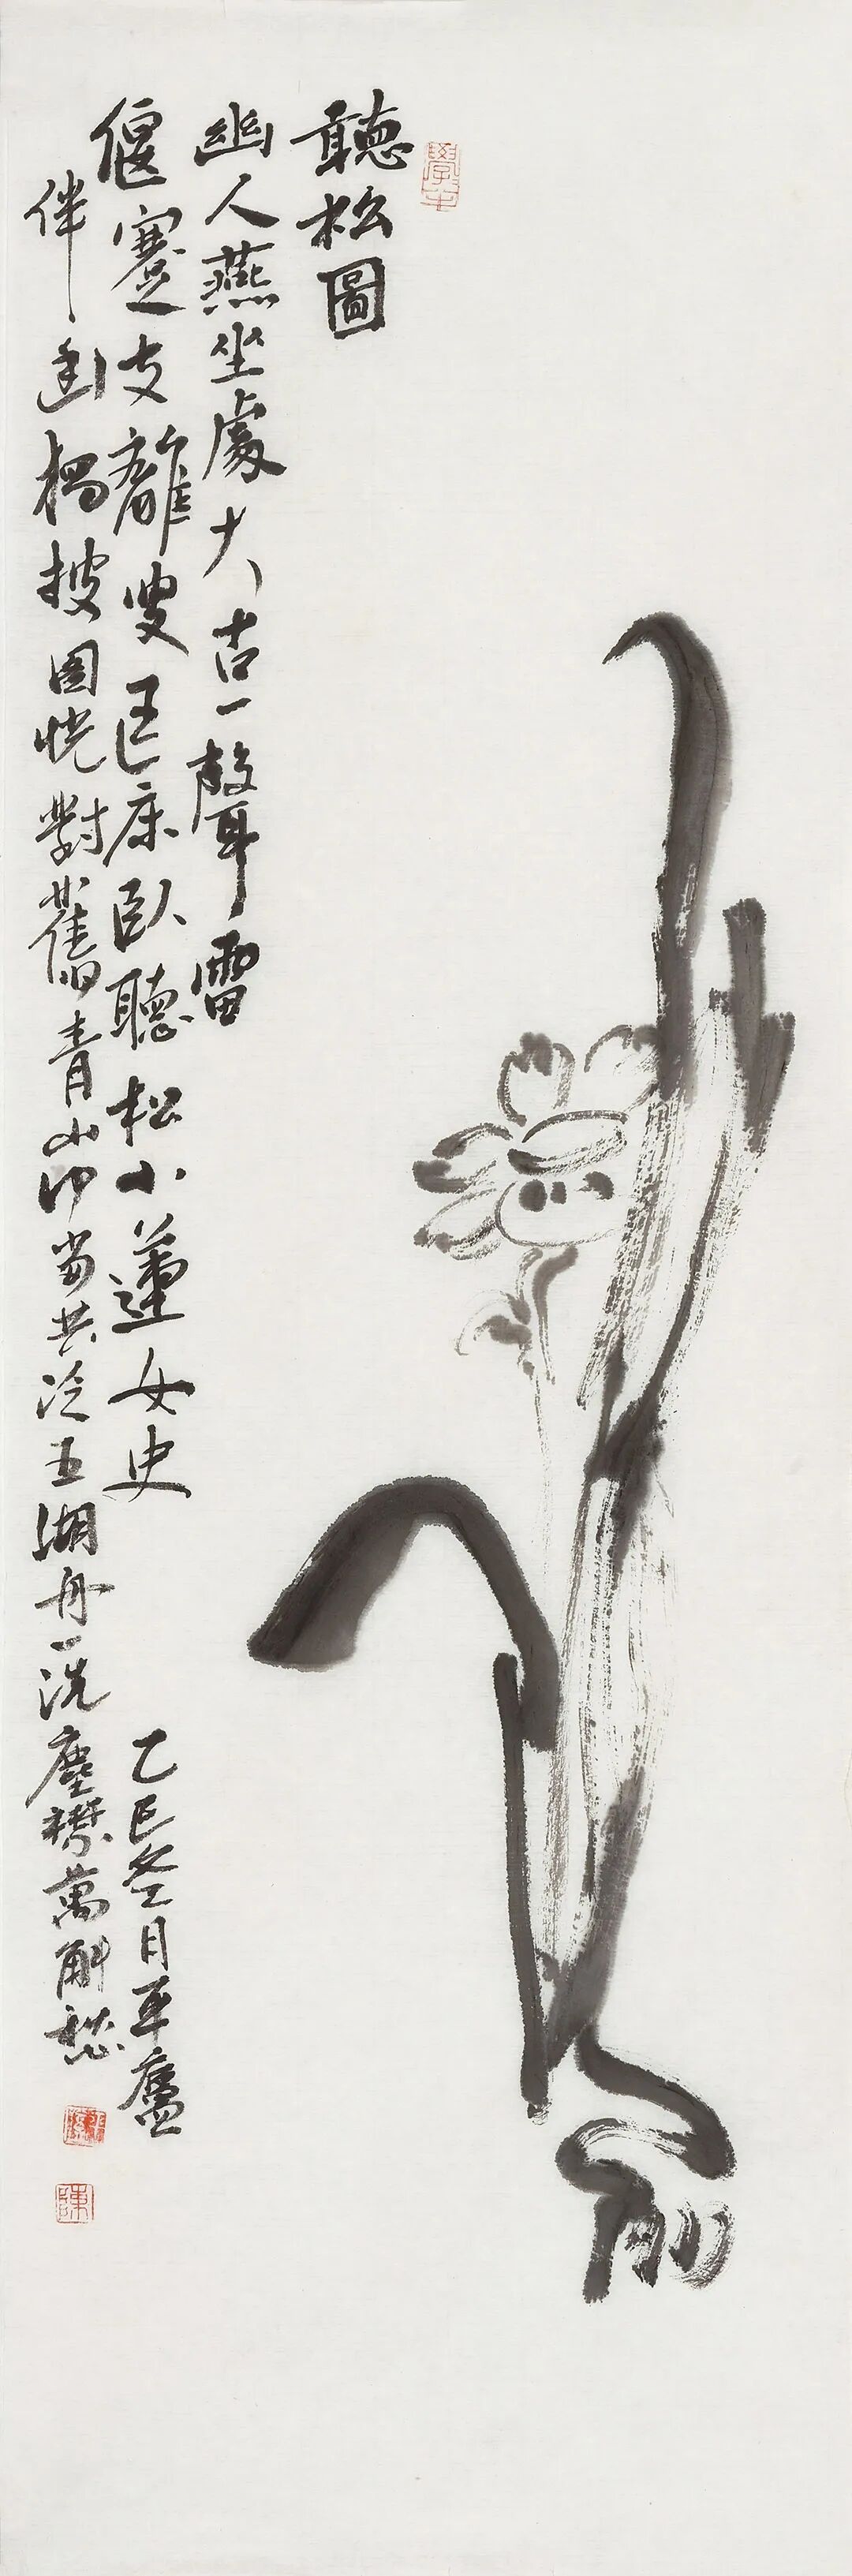 聽松圖
幽人燕坐處太古一聲雷
偃蹇支離叟匡床臥聽松小蓮女史
伴幽披圖恍對舊青山何當共泛五湖舟一洗塵襟萬斛愁
乙巳冬月平廬
陳